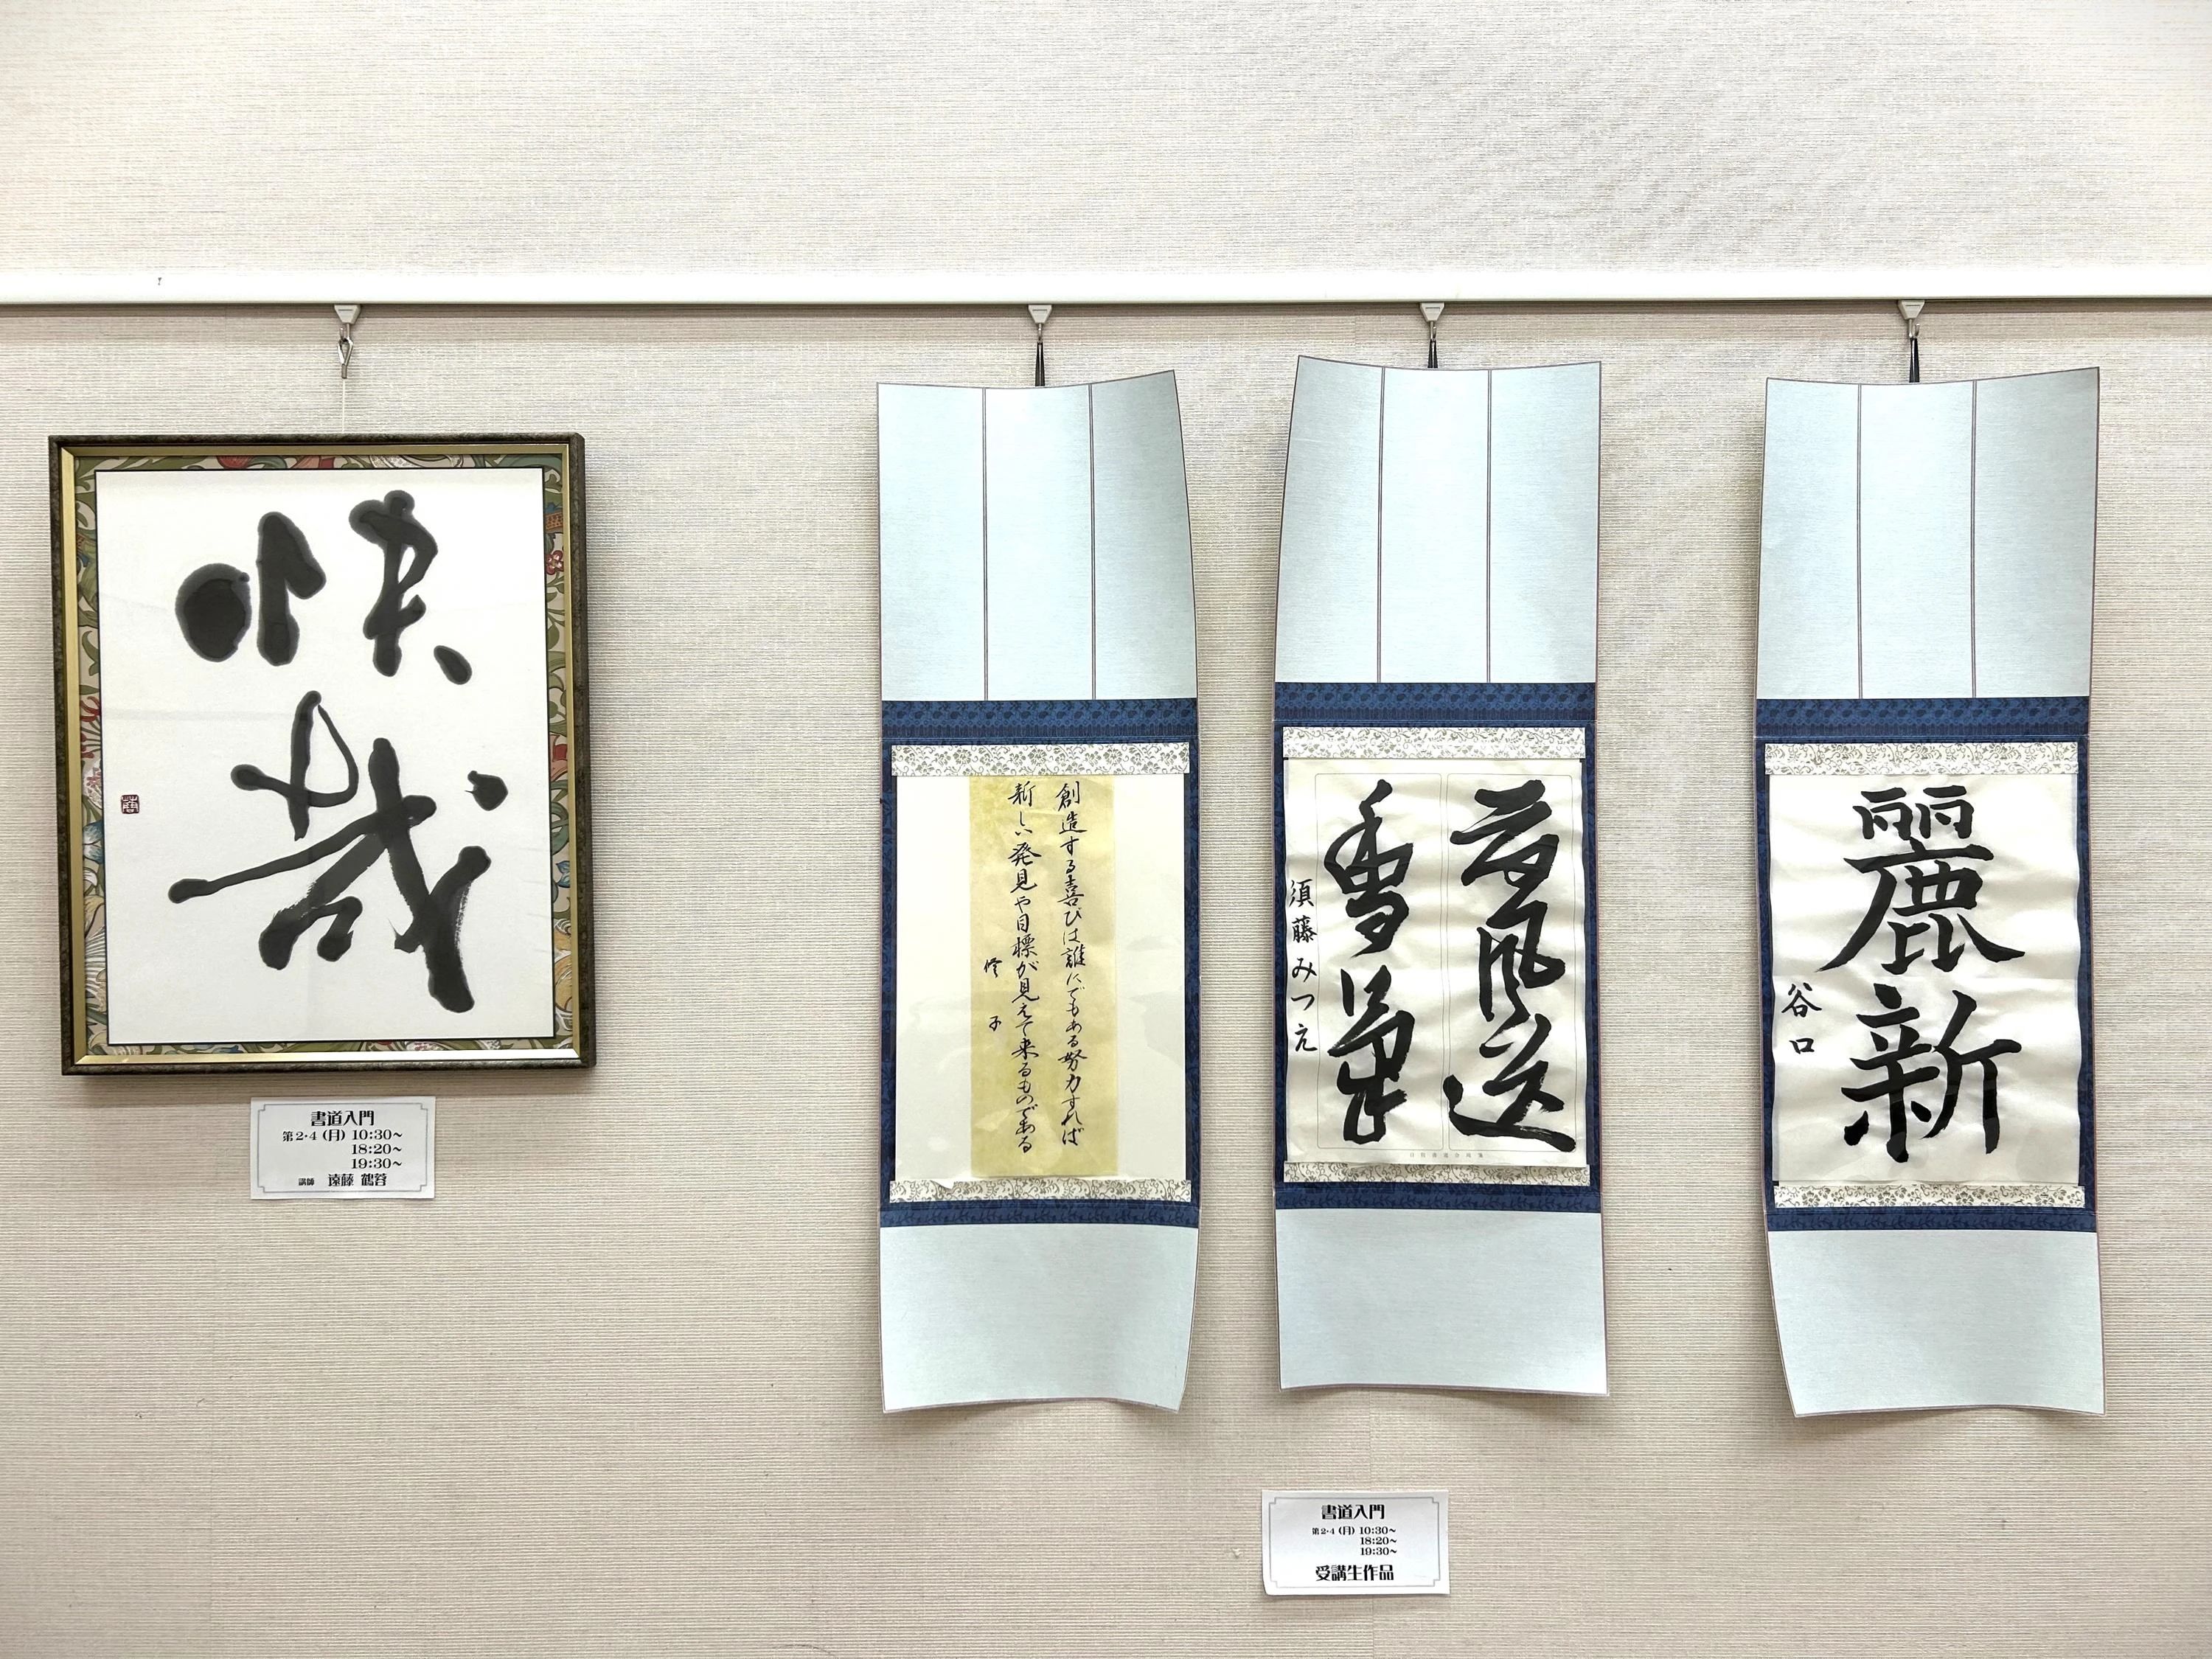 快哉
書道入門
第2・4 (月) 10:30~
18:20~
19:30~
講師 遠藤
創造する喜びは誰にでもある努力すれば
新しい発見や目標が見えて来るものである
須藤みつえ
麗新
谷口
書道入門
第2・4 (月) 10:30~
18:20~
19:30~
受講生作品